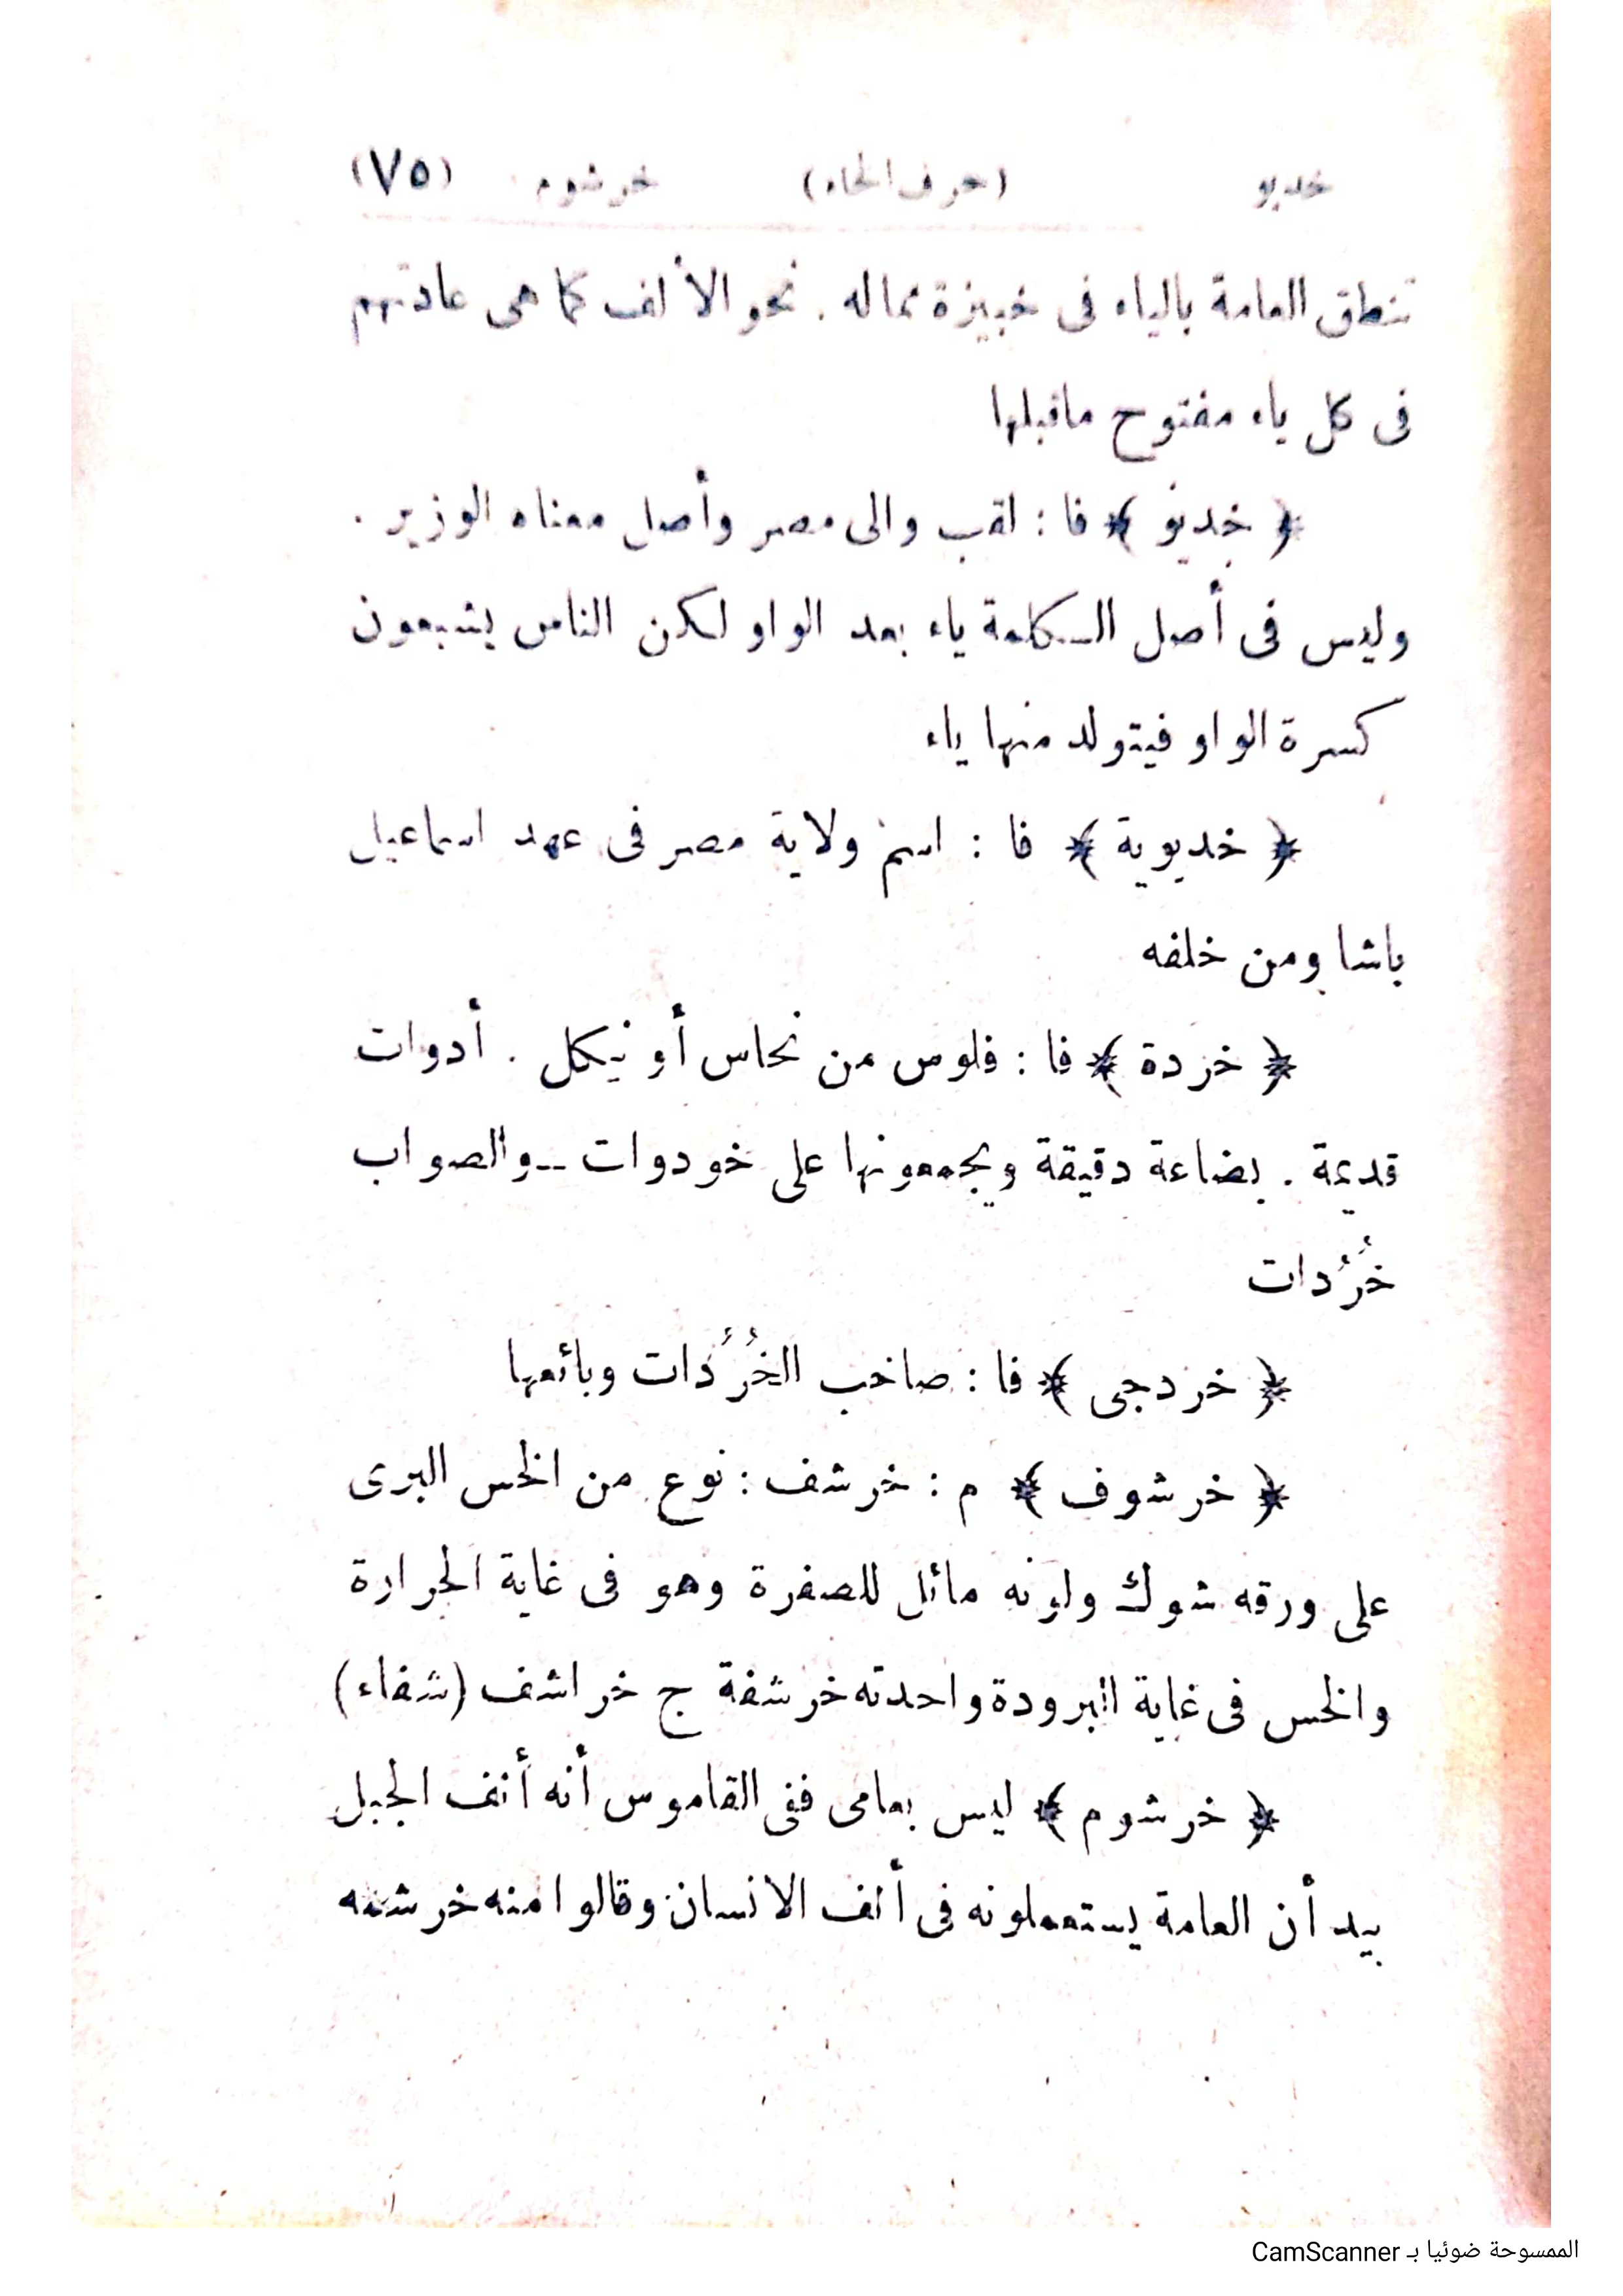 خديو (حرف الخاء) خرشوم (٧٥)
تنطق العامة بالياء فى خبيزة ممالة . نحو الألف كما هى عادتهم
فى كل ياء مفتوح ماقبلها
﴿ خديو ﴾ فا : لقب والى مصر وأصل معناه الوزير .
وليس فى أصل الكلمة ياء بعد الواو لكن الناس يشبعون
كسرة الواو فيتولد منها ياء
﴿ خديوية ﴾ فا : اسم ولاية مصر فى عهد اسماعيل
باشا ومن خلفه
﴿ خردة ﴾ فا : فلوس من نحاس أو نيكل . أدوات
قديمة . بضاعة دقيقة ويجمعونها على خودوات ــ والصواب
خُرُدات
﴿ خردجى ﴾ فا : صاحب الخُرُدات وبائعها
﴿ خرشوف ﴾ م : خرشف : نوع من الخس البرى
على ورقه شوك ولونه مائل للصفرة وهو فى غاية الحرارة
والخس فى غاية البرودة واحدته خرشفة ج خراشف (شفاء)
﴿ خرشوم ﴾ ليس بعامى ففى القاموس أنه أنف الجبل
بيد أن العامة يستعملونه فى أنف الانسان وقالوا منه خرشمه
الممسوحة ضوئيا بـ CamScanner